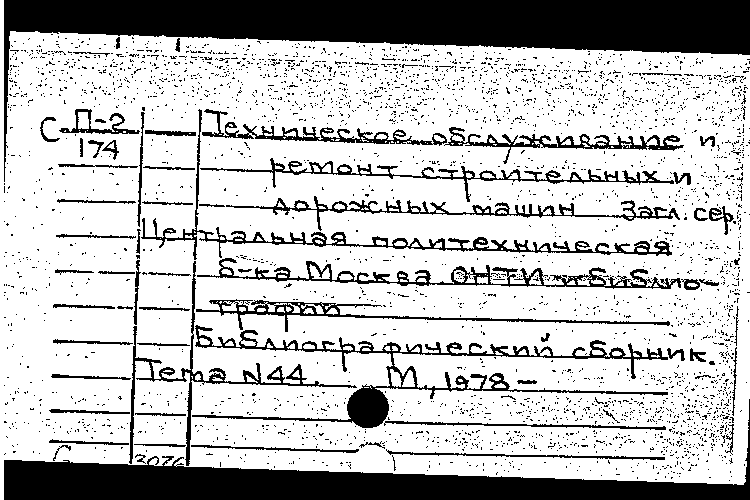 С П-2 Техническое обслуживание и
174 ремонт строительных и
дорожных машин Загл. сер.
Центральная политехническая
б-ка, Москва ОНТИ и библио-
графии
Библиографический сборник.
Тема N44. М., 1978 —